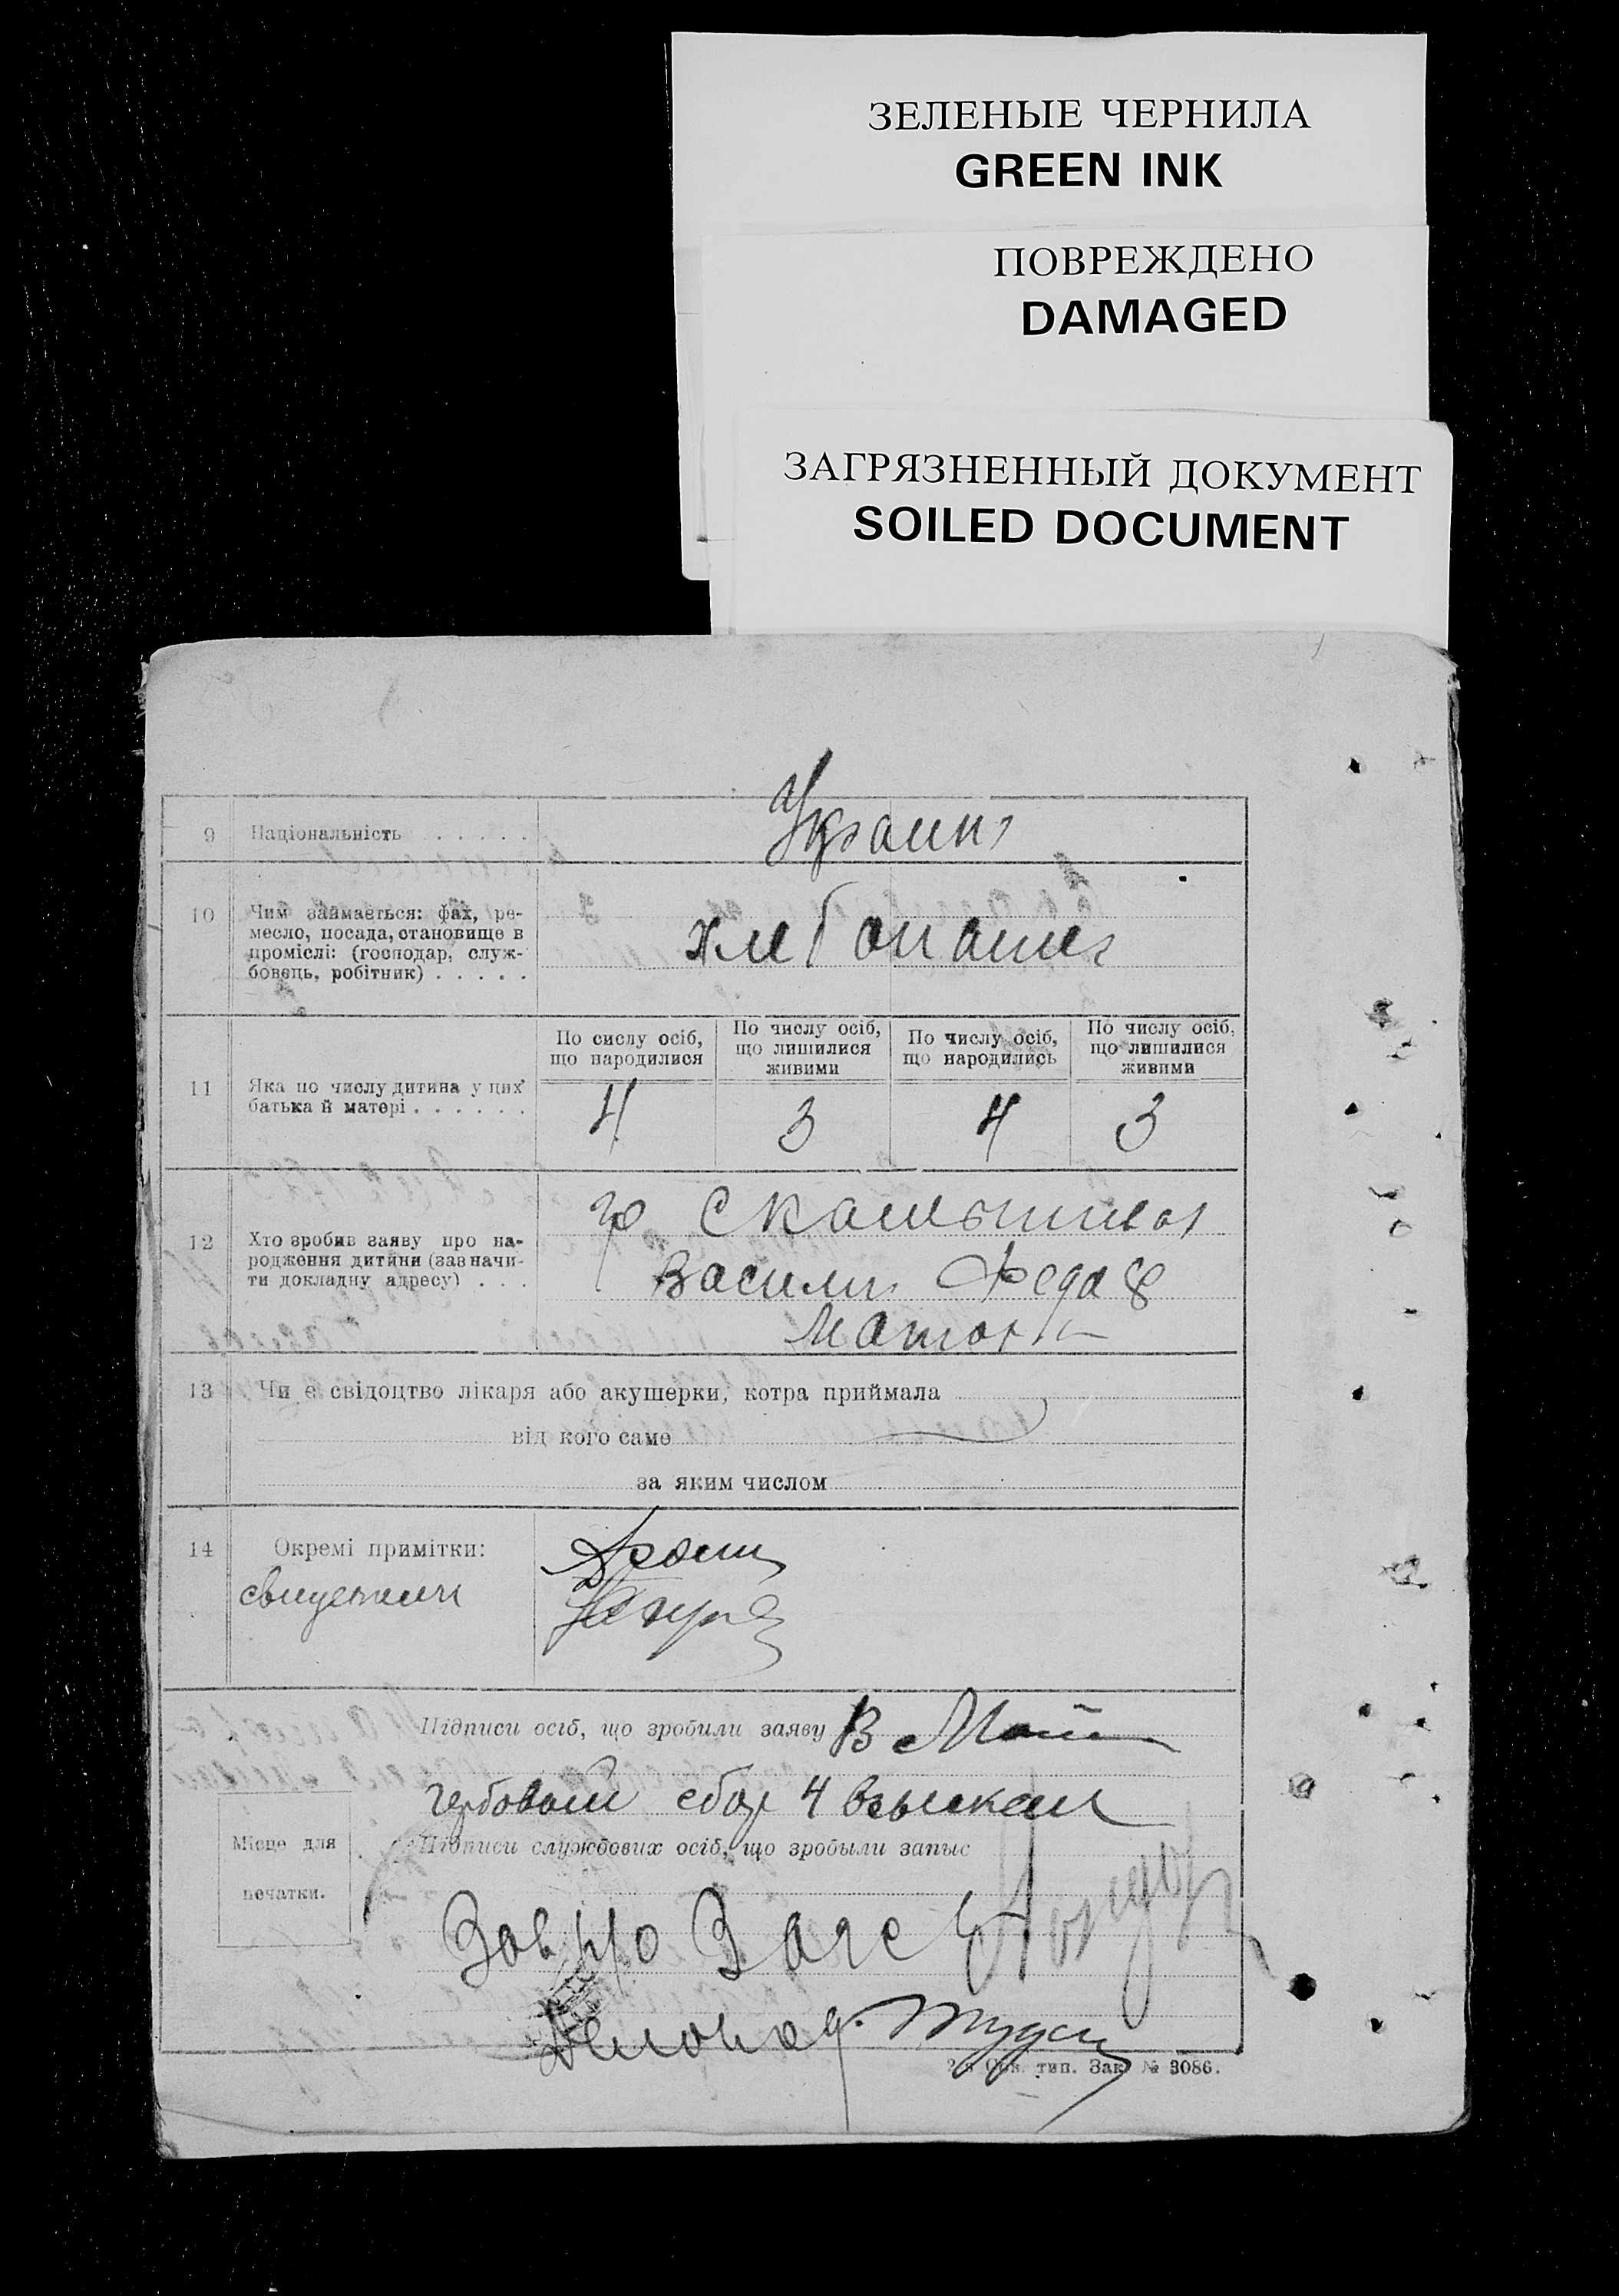 ЗЕЛЕНЫЕ ЧЕРНИЛА
GREEN INK
ПОВРЕЖДЕНО
DAMAGED
ЗАГРЯЗНЕННЫЙ ДОКУМЕНТ
SOILED DOCUMENT
9 Національність . . . . . Украин
10 Чим займається: фах, ре-
месло, посада, становище в
проміслі: (господар, служ-
бовець, робітник) . . . . .
хлебопашец
По сислу осіб, що народилися
По числу осіб, що лишилися живими
По числу осіб, що народились
По числу осіб, що лишилися живими
11 Яка по числу дитина у цих
батька й матері . . . . . .
4 3 4 3
12 Хто зробив заяву про на-
родження дитини (зазначи-
ти докладну адресу) . . .
гр
Василий Федор
13 Чи є свідоцтво лікаря або акушерки, котра приймала
від кого саме
за яким числом
14 Окремі примітки:
свидетели
Підписи осіб, що зробили заяву В
гербовый сбор 4 взыскан
Місце для
печатки.
Підписи службових осіб, що зробыли запыс
Зав
Деловод.
тип. Зак. № 3086.